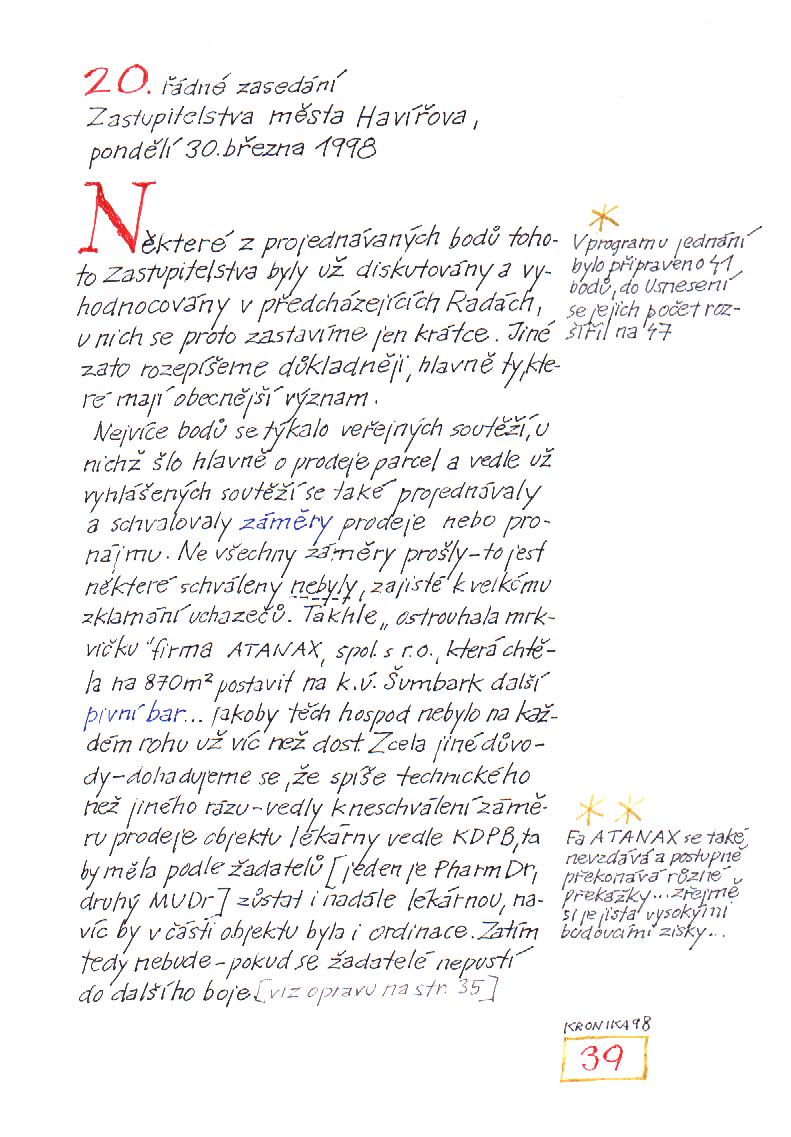 20. řádné zasedání
Zastupitelstva města Havířova,
pondělí 30. března 1998
Některé z projednávaných bodů toho-
to Zastupitelstva byly už diskutovány a vy-
hodnocovány v předcházejících Radách,
u nich se proto zastavíme jen krátce. Jiné
zato rozepíšeme důkladněji, hlavně ty, kte-
ré mají obecnější význam.
Nejvíce bodů se týkalo veřejných soutěží, u
nichž šlo hlavně o prodeje parcel a vedle už
vyhlášených soutěží se také projednávaly
a schvalovaly záměry prodeje nebo pro-
nájmu. Ne všechny záměry prošly - to jest
některé schváleny nebyly, zajisté k velkému
zklamání uchazečů. Takhle „ostrouhala mrk-
vičku" firma ATANAX, spol. s r.o., která chtě-
la na 870m² postavit na k.ú. Šumbark další
pivní bar... jakoby těch hospod nebylo na kaž-
dém rohu už víc než dost. Zcela jiné důvo-
dy - dohadujeme se, že spíše technického
než jiného rázu - vedly k neschválení zámě-
ru prodeje objektu lékárny vedle KDPB, ta
by měla podle žadatelů [jeden je PharmDr,
druhý MUDr] zůstat i nadále lékárnou, na-
víc by v části objektu byla i ordinace. Zatím
tedy nebude - pokud se žadatelé nepustí
do dalšího boje [viz opravu na str. 35]
*
V programu jednání
bylo připraveno 41
bodů, do Usnesení
se jejich počet roz-
šířil na 47
* *
Fa ATANAX se také
nevzdává a postupně
překonává různé
překážky... zřejmě
si je jistá vysokými
budoucími zisky...
KRONIKA 98
39